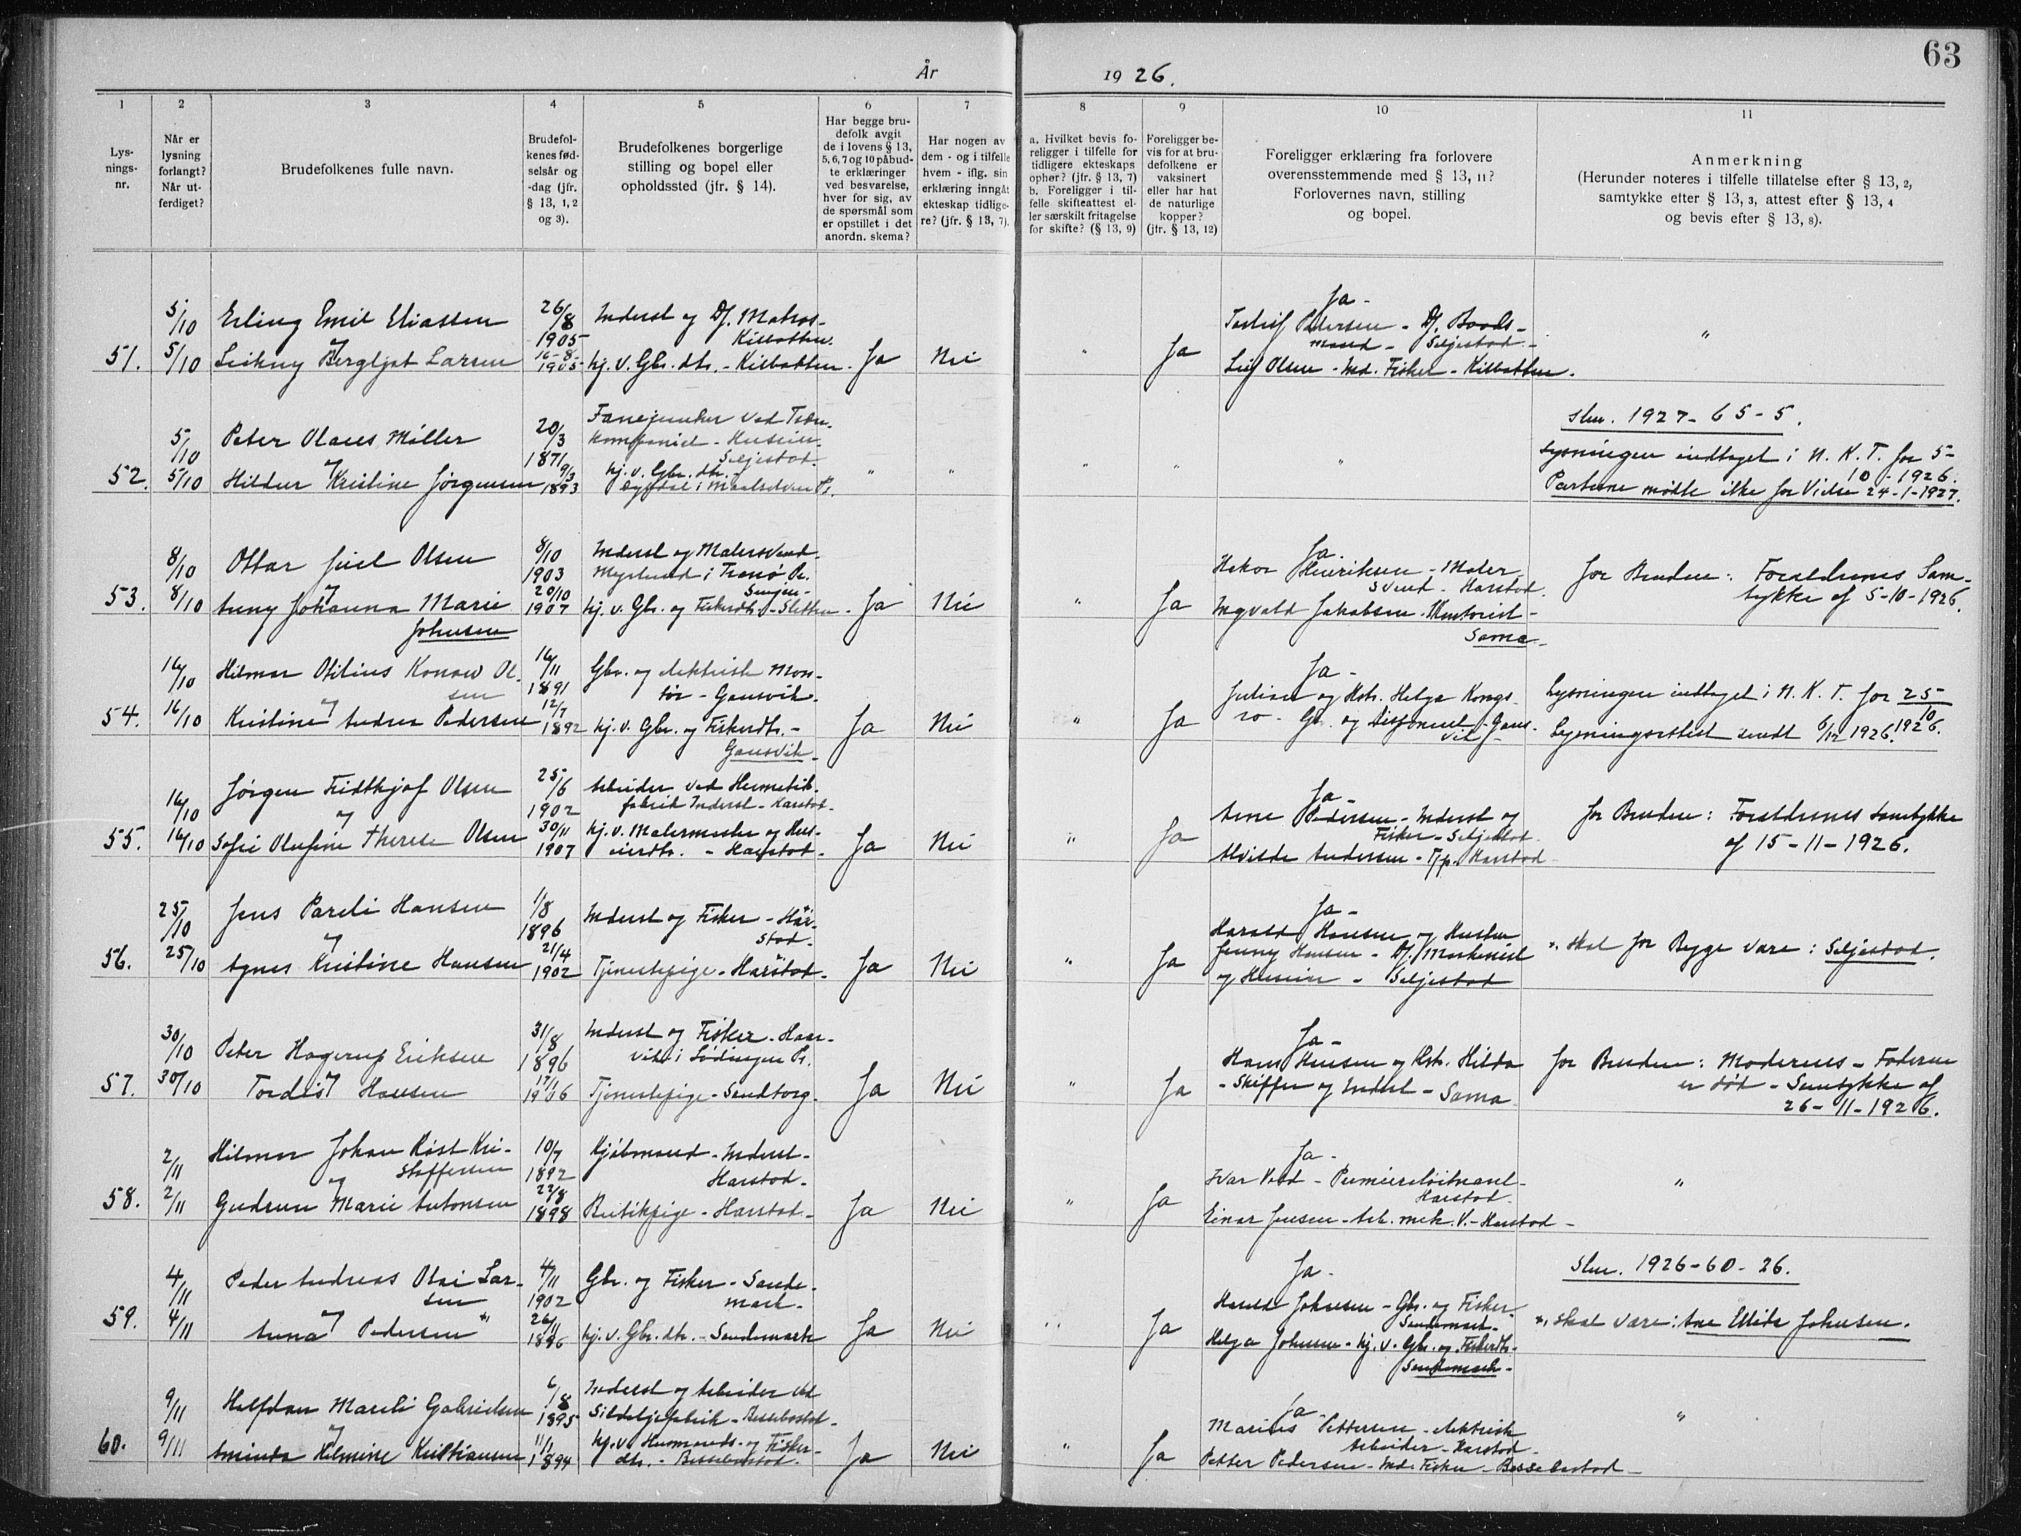 63
År 1926.
1 2 3 4 5 6 7 8 9 10 11
Lys-
nings-
nr.
Når er
lysning
forlangt?
Når ut-
ferdiget?
Brudefolkenes fulle navn.
Brudefol-
kenes fød-
selsår og
-dag (jfr.
§ 13, 1, 2
og 3).
Brudefolkenes borgerlige
stilling og bopel eller
opholdssted (jfr. § 14).
Har begge bru-
defolk avgit
de i lovens § 13,
5, 6, 7 og 10 påbud-
te erklæringer
ved besvarelse,
hver for sig, av
de spørsmål som
er opstillet i det
anordn. skema?
Har nogen av
dem - og i tilfelle
hvem - iflg. sin
erklæring inngått
ekteskap tidlige-
re? (jfr. § 13, 7).
a. Hvilket bevis fo-
religger i tilfelle for
tidligere ekteskaps
ophør? (jfr. § 13, 7)
b. Foreligger i til-
felle skifteattest el-
ler særskilt fritagelse
for skifte? (§ 13, 9)
Foreligger be-
vis for at bru-
defolkene er
vaksinert
eller har hat
de naturlige
kopper?
(jfr. § 13, 12)
Foreligger erklæring fra forlovere
overensstemmende med § 13, 11?
Forlovernes navn, stilling
og bopel.
Anmerkning
(Herunder noteres i tilfelle tillatelse efter § 13, 2,
samtykke efter § 13, 3, attest efter § 13, 4
og bevis efter § 13, 8).
5/10 Erling Emil Eliassen 26/8 1905 Inderst og Df. Matros - Kilbotten. Ja -
51. 5/10 og Leikny Bergljot Larsen 16-8-1905 hj. v. Gbr. dtr. - Kilbotten. Ja Nei " Ja
Pedersen - Df. Baads-
mand - Seljestad -
Leif Olsen - Ind. Fisker - Kilbotten. "
5/10 Peter Olaus Møller 20/3 1871 Fanejunker ved
- Huseier - Seljestad.
52. 5/10 og Hildur Kristine Jørgensen 9/3 1893 hj. v. Gbr. dtr. -
i Maalselven Pr. " " " " "
Slm. 1927 - 65 - 5.
Lysningen indtaget i N. K. T. for 5-
10 - 1926.
Parterne mødte ikke for Vielse 24-1-1927.
8/10 Ottar Juel Olsen 8/10 1903 Inderst og Malersvend -
i Tranø Pr. Senjen -
53. 8/10 og Anny Johanna Marie
Johnsen 20/10 1907 hj. v. Gbr. og Fiskerdtr. - Sletten - Ja Nei " Ja
Ja -
Hakon Henriksen - Maler
svend - Harstad.
Ingvald Jakobsen -
Sama -
for Bruden: Foreldrenes Sam-
tykke af 5-10-1926.
16/10 Hilmar Otilius Konow Ol-
sen 16/11 1891 Gbr. og elektrisk Mon-
tør - Gansvik.
54. 16/10 og Kristine Andrea Pedersen 12/7 1892 hj. v. Gbr. og Fiskerdtr. -
Gansvik - Ja Nei " Ja
Ja -
Julian og Hstr. Helga Kongs-
ro - Gbr. og Disponent - Gans-
vik -
Lysningen indtaget i N. K. T. for 25/10
1926.
Lysningsattest sendt 6/12 1926.
16/10 Jørgen Fridthjof Olsen 25/6 1902 Arbeider ved Hermetik-
fabrik Inderst - Harstad -
55. 16/10 og Sofie Olufine Therese Olsen 30/11 1907 hj. v. Malermester og Hus-
eierdtr. - Harstad - Ja Nei " Ja
Ja -
Arne Pedersen - Inderst og
Fisker - Seljestad
Alvilde Andersen - Tjp. Harstad -
for Bruden: Foreldrenes Samtykke
af 15 - 11 - 1926.
25/10 Jens Pareli Hansen 1/8 1896 Inderst og Fisker - Har-
stad.
56. 25/10 og Agnes Kristine Hansen 21/4 1902 Tjenestepige - Harstad - Ja Nei " Ja
Ja -
Harald Hansen og Hustru
Jenny Hansen - Df. Maskinist
og Huseier - Seljestad
skal for Begge være: Seljestad.
30/10 Peter Hagerup Eriksen 31/8 1896 Inderst og Fisker -
i Lødingen Pr.
57. 30/10 og Tordis Hansen 17/1 1906 Tjenestepige - Sandtorg. Ja Nei " Ja
Ja -
Hans Hansen og Hstr. Hilda
- Skipper og Inderst - Sama
for Bruden: Moderens - Faderen
er død - Samtykke af
26 - 11 - 1926.
2/11 Hilmar Johan Røst Kri-
stoffersen 10/7 1892 Kjøbmand - Inderst -
Harstad -
58. 2/11 og Gudrun Marie Antonsen 22/8 1898 Butikpige - Harstad - Ja Nei " Ja
Ja -
Ivar - Premierløitnant -
Harstad -
Einar Jensen - Arb. mek. V. - Harstad - "
4/11 Peder Andreas Olai Lar-
sen 4/11 1902 Gbr. og Fisker - Sande-
mark -
59. 4/11 og Anna Pedersen 26/11 1896 hj. v. Gbr. dtr. - Sandemark Ja Nei " Ja
Ja -
Harald Johnsen - Gbr. og Fisker
Sandemark -
Helga Johnsen - hj. v. Gbr. og Fiskerdtr. -
Sandemark -
Slm. 1926 - 60 - 26.
skal være: Ane Elida Johnsen.
9/11 Halfdan Mareli Gabrielsen 6/8 1895 Inderst og Arbeider ved
Sildoljefabrik - Bessebostad -
60. 9/11 og Aminda Hilmine Kristiansen 11/1 1894 hj. v. Husmands- og Fisker-
dtr. - Bessebostad. Ja Nei " Ja
Ja -
Marius Pettersen - elektrisk
Arbeider - Harstad -
Petter Pedersen - Inds. Fisker - Bessebostad - "